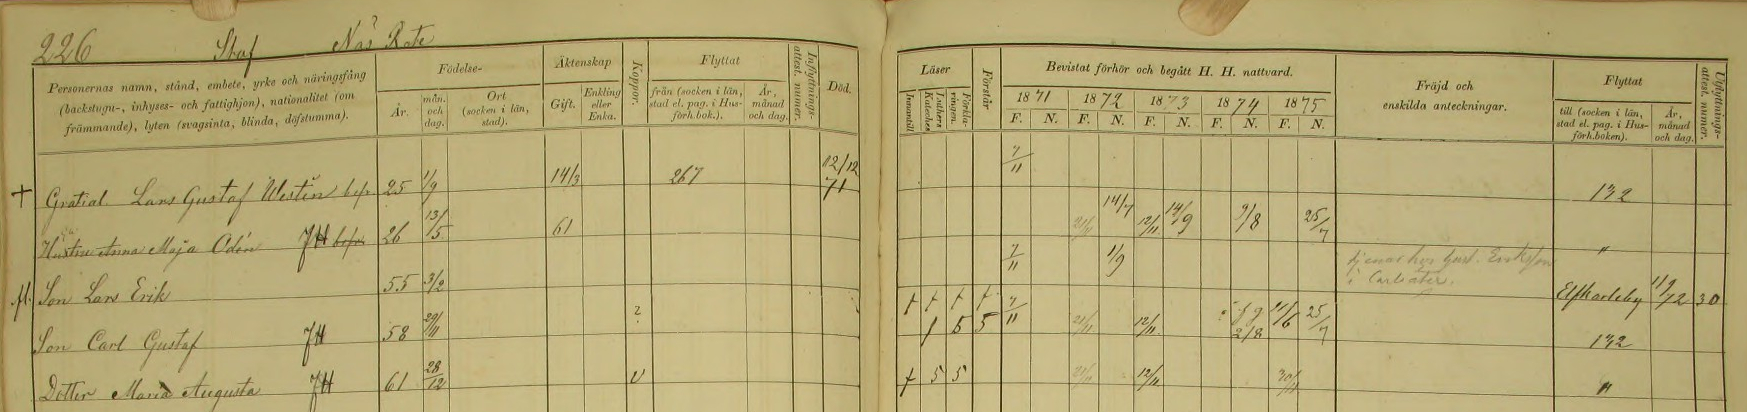 226 Staf Näs Rote
Personernas namn, stånd, embete, yrke och näringsfång
(backstugu-, inhyses- och fattighjon), nationalitet (om
främmande), lyten (svagsinta, blinda, döfstumma).
Födelse-
År.
mån. och dag.
Ort (socken i län, stad).
Äktenskap
Gift.
Enkling eller Enka.
Koppor.
Flyttat
från (socken i län, stad el. pag. i Hus- förh.bok.).
År, månad och dag.
Inflyttnings- attest. numer.
Död.
Läser
Innantill
Luthers Kateches
Förkla- ringen.
Förstår
Bevistat förhör och begått H. H. nattvard.
1871 1872 1873 1874 1875
F. N. F. N. F. N. F. N. F. N.
Fräjd och
enskilda anteckningar.
Flyttat
till (socken i län, stad el. pag. i Hus- förh.boken).
År, månad och dag.
Utflyttnings- attest. numer.
+ Gratial Lars Gustaf Westin 25 1/9 14/3 267 12/12 71 7/11 132
Hustru Anna Maja Odén JH 26 13/5 61 14/7 12/11 14/9 9/8 25/7 "
fl. Son Lars Erik 55 3/2 7/11 1/9 tjenar hos Gust. Eriksson i Elfkarleby 11/9 72 30
Son Carl Gustaf JH 58 29/11 ? 7/11 21/11 12/11 2/8 11/6 25/7 132
Dotter Maria Augusta JH 61 28/12 v 5 5 21/11 12/11 30/11 "